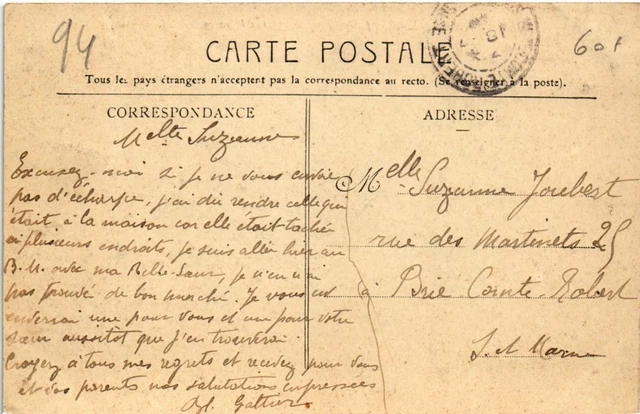 94
60 f
CARTE POSTALE
Tous les pays étrangers n'acceptent pas la correspondance au recto. (Se renseigner à la poste).
CORRESPONDANCE
ADRESSE
Melle Suzanne
Excusez-moi si je ne vous envoie
pas d'écharpe, j'ai dû rendre celle qui
était à la maison car elle était tachée
en plusieurs endroits, je suis allée hier au
B.M. avec ma Belle-Sœur, je n'en ai
pas trouvé de bon marché. Je vous en
enverrai une pour vous et une pour votre
sœur aussitot que j'en trouverai
Croyez à tous mes regrets et recevez pour vous
et vos parents nos salutations empressées
Melle Suzanne Joubert
rue des Martinets 25
à Brie Comte-Robert
S. et Marne